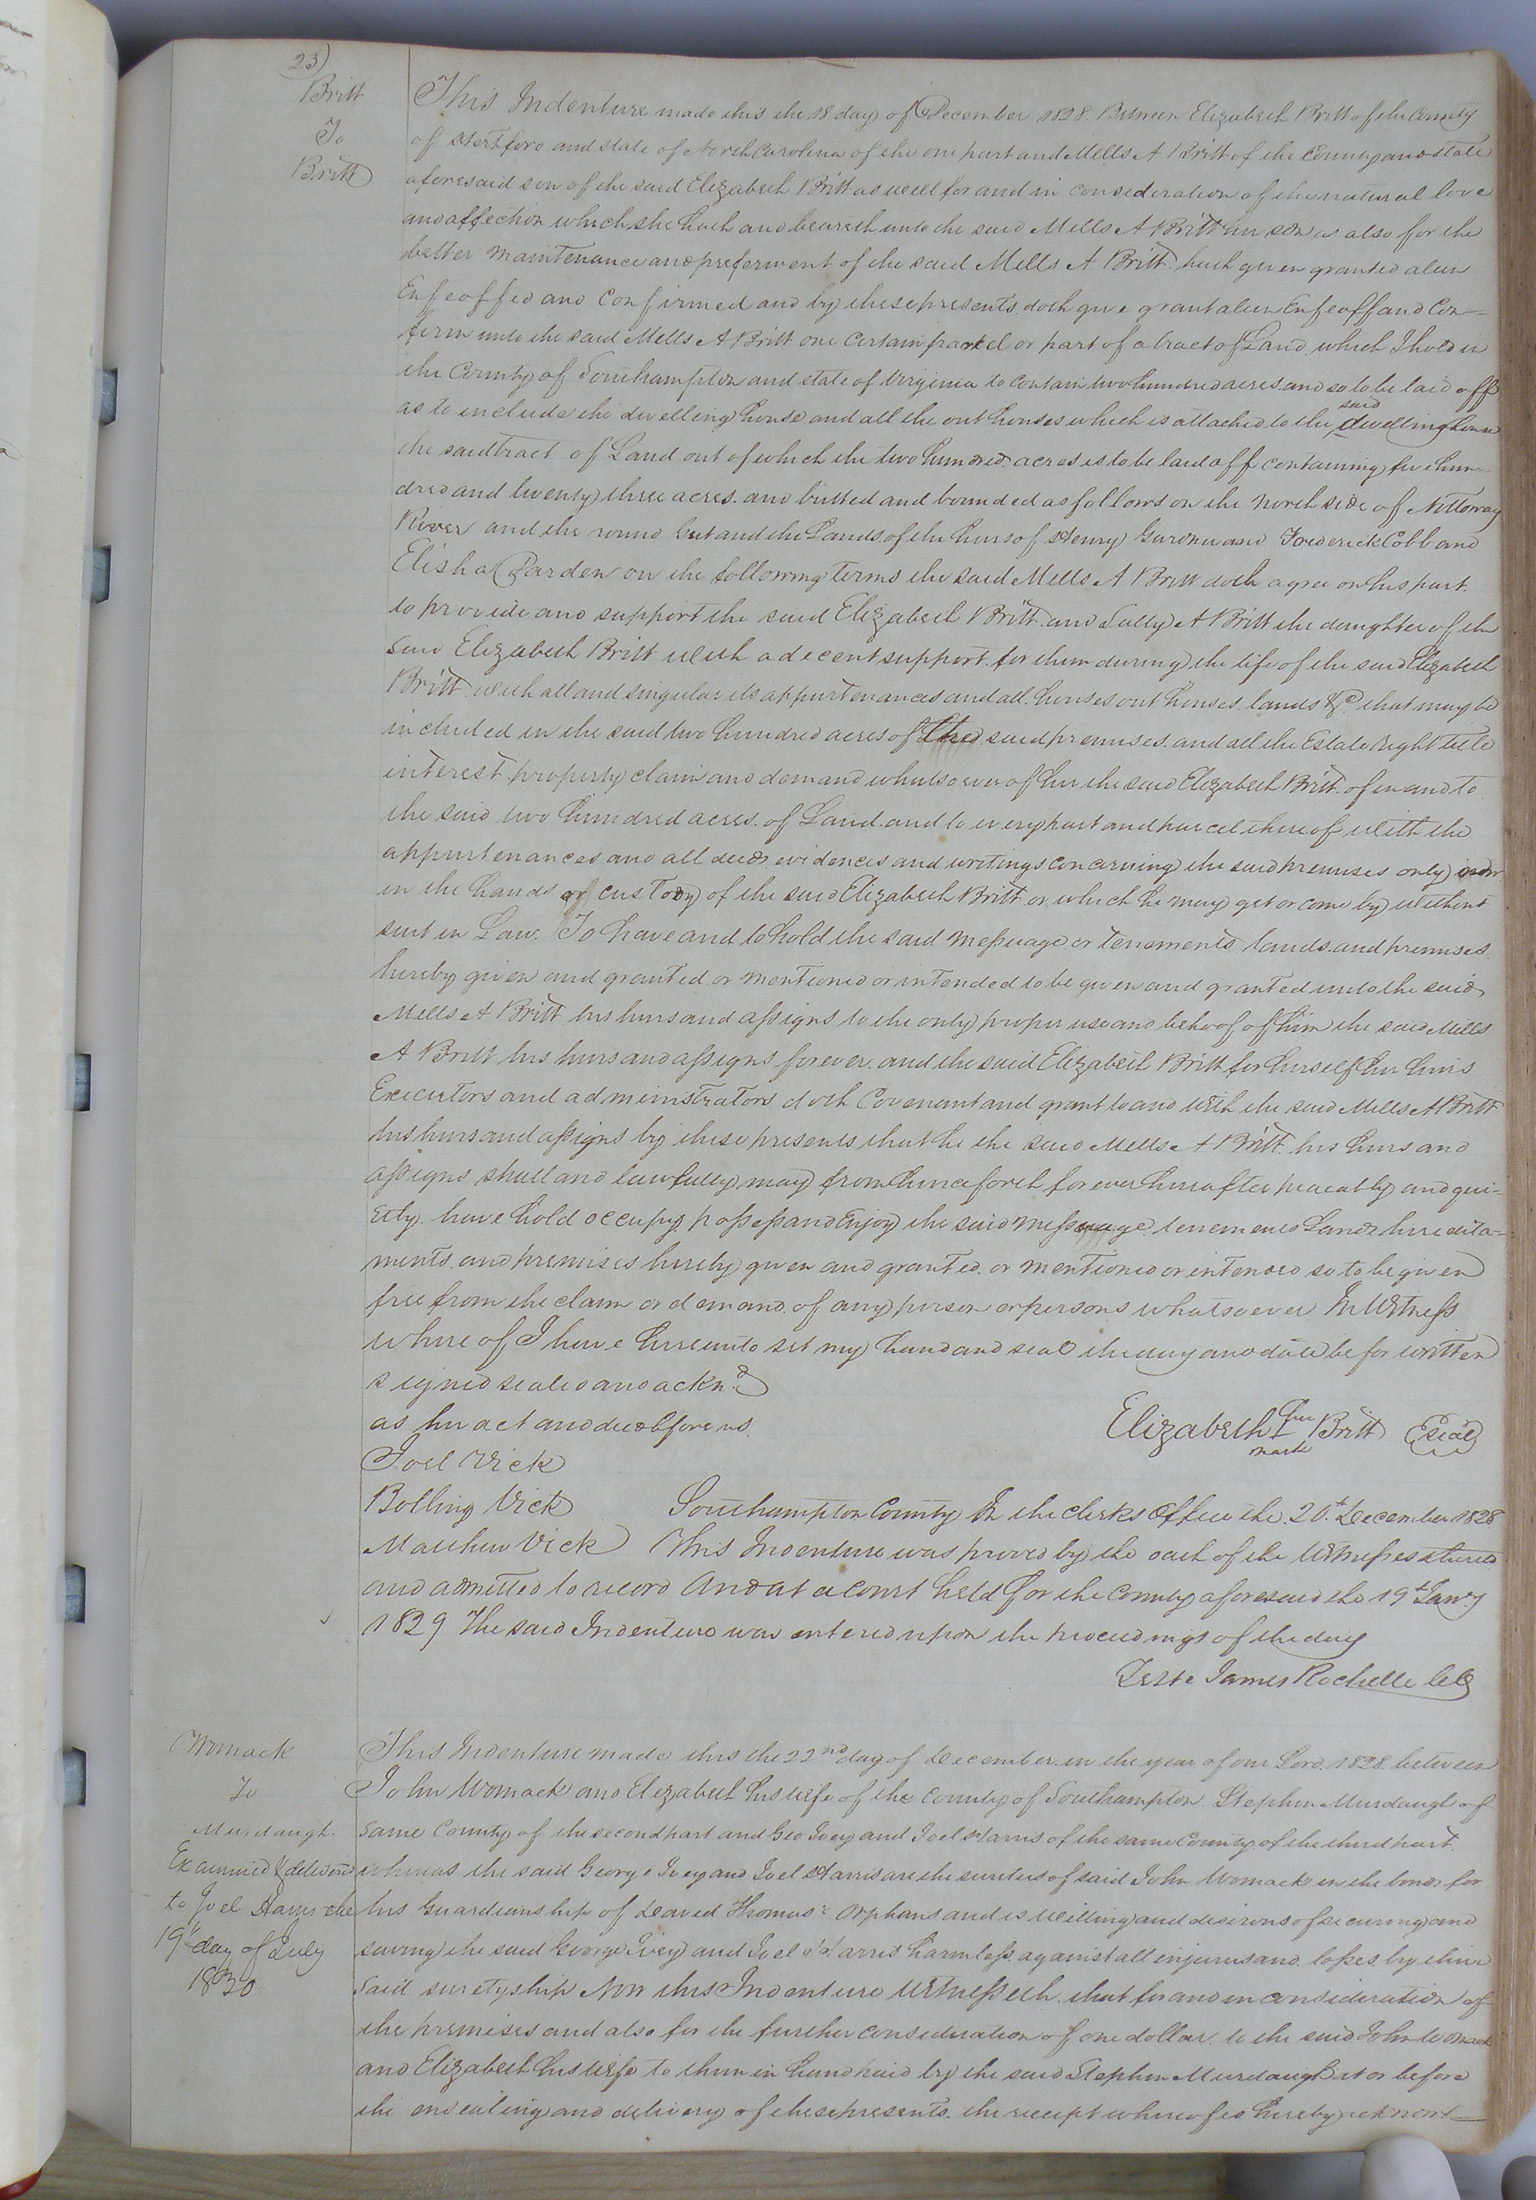 23
Britt
To
Britt
This Indenture made this the 18 day of December 1828 Between Elizabeth Britt of the County
of Hertford and state of North Carolina of the one part and Mills A Britt of the County and state
aforesaid son of the said Elizabeth Britt as well for and in consideration of the natural love
and affection which she hath and beareth unto the said Mills A Britt her son as also for the
better maintenance and preferment of the said Mills A Britt hath given granted alien
Enfeoffed and Confirmed and by these presents doth give grant alien Enfeoff and Con=
firm unto the said Mills A Britt one certain parcel or part of a tract of Land which I hold in
the County of Southampton and state of Virginia to contain two hundred acres and so to be laid off
as to include the dwelling house and all the out houses which is attached to the said dwelling house
the said tract of Land out of which the two hundred acres is to be laid off containing five hun-
dred and twenty three acres and butted and bounded as follows on the north side of Nottoway
River and the round Gut and the Lands of the heirs of Henry Gardner and Frederick Cobb and
Elisha Darden on the following terms the said Mills A Britt doth agree on his part
to provide and support the said Elizabeth Britt and Sally A Britt the daughter of the
said Elizabeth Britt with a decent support for them during the life of the said Elizabeth
Britt with all and singular its appurtenances and all houses out houses lands &c that may be
included in the said two hundred acres of said premises and all the Estate right title
interest property claim and demand whatsoever of her the said Elizabeth Britt of in and to
the said two hundred acres of Land and to every part and parcel thereof with the
appurtenances and all deeds evidences and writings concerning the said premises only now
in the hands or custody of the said Elizabeth Britt or which he may get or come by without
suit in Law. To have and to hold the said Messuage or tenements lands and premises
hereby given and granted or mentioned or intended to be given and granted unto the said
Mills A Britt his heirs and assigns to the only proper use and behoof of him the said Mills
A Britt his heirs and assigns forever and the said Elizabeth Britt for herself her heirs
Executors and administrators doth Covenant and grant to and with the said Mills A Britt
his heirs and assigns by these presents that he the said Mills A Britt his heirs and
assigns shall and lawfully may from henceforth for ever hereafter peacably and qui-
etly have hold occupy possess and Enjoy the said messuage tenements Lands heredita-
ments and premises hereby given and granted or mentioned or intended so to be given
free from the claim or demand of any person or persons whatsoever In Witness
where of I have hereunto set my hand and seal the day and date be for written
signed sealed and ackn.d
as her act and deed before us
Elizabeth her Britt Seal
mark
Joel Vick
Bolling Vick
Matthew Vick
Southampton County In the clerks office the 20th December 1828
This Indenture was proved by the oath of the Witnesses thereto
and admitted to record And at a court held for the county aforesaid the 19th Jany
1829 The said Indenture was entered upon the proceedings of the day
Teste James Rochelle Clk
Womack
To
Murdaugh
Examined & delivered
to Joel Harris the
19th day of July
1830
This Indenture made this the 22nd day of December in the year of our Lord 1828 between
John Womack and Elizabeth his wife of the County of Southampton Stephen Murdaugh of
same County of the second part and Geo Ivey and Joel Harris of the same County of the third part
whereas the said George Ivey and Joel Harris are the sureties of said John Womack in the bond for
his Guardianship of David Thomas's Orphans and is willing and desirous of securing and
saving the said George Ivey and Joel Harris harmless against all injuries and losses by their
said suretyship Now this Indenture Witnesseth that for and in consideration of
the premises and also for the further consideration of one dollar to the said John Womack
and Elizabeth his wife to them in hand paid by the said Stephen Murdaugh at or before
the ensealing and delivery of these presents the receipt whereof is hereby acknowl-